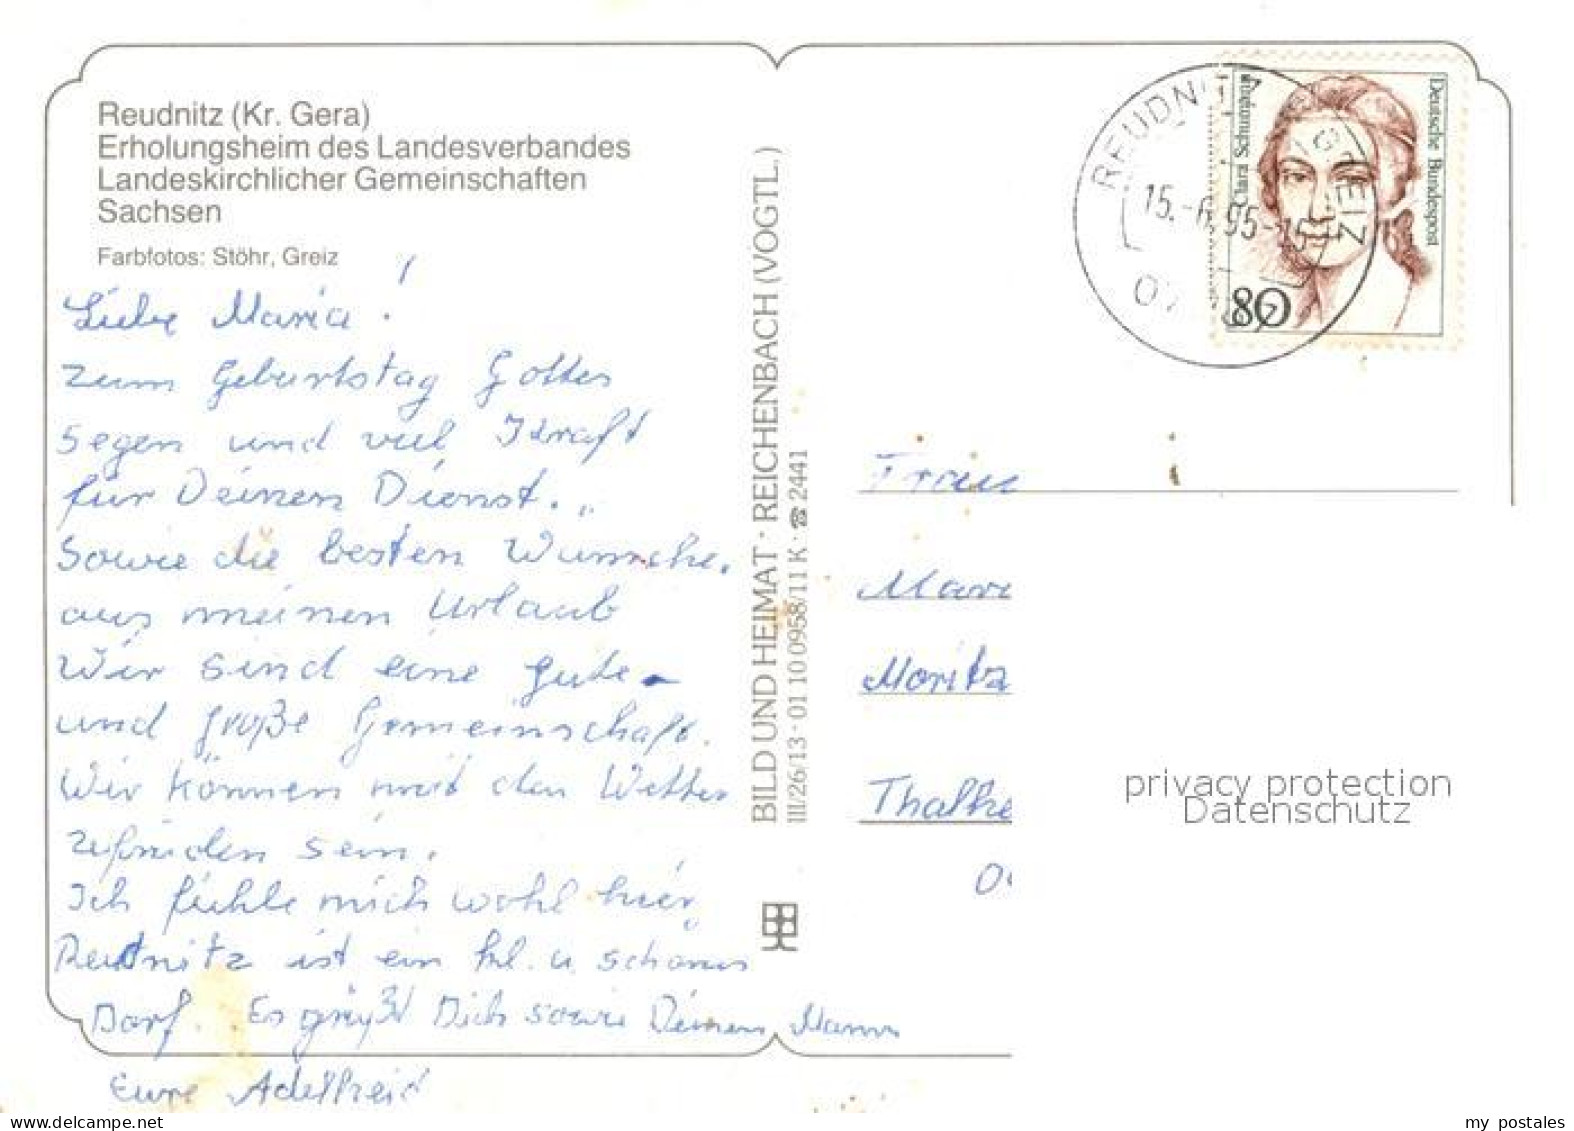 Reudnitz (Kr. Gera)
Erholungsheim des Landesverbandes
Landeskirchlicher Gemeinschaften
Sachsen
Farbfotos: Stöhr, Greiz
Liebe Maria!
zum Geburtstag Gottes
Segen und viel Kraft
für Deinen Dienst.
Sowie die besten Wünsche.
aus meinen Urlaub
Wir sind eine gute
und große Gemeinschaft.
Wir können mit den Wetter
zufrieden sein.
Ich fühle mich wohl hier
Reudnitz ist ein kl. u. schönes
Dorf. Es grüßt Dich sowie Deinen Mann
Eure Adelheid
BILD UND HEIMAT · REICHENBACH (VOGTL.)
III/26/13 · 01 10 0958/11 K · ☎ 2441
REUDNITZ
GREIZ
15.-6.95-15
Deutsche Bundespost
Clara Schumann
80
Frau
Mari
Moritz
Thalhe
privacy protection
Datenschutz
www.delcampe.net
my postales